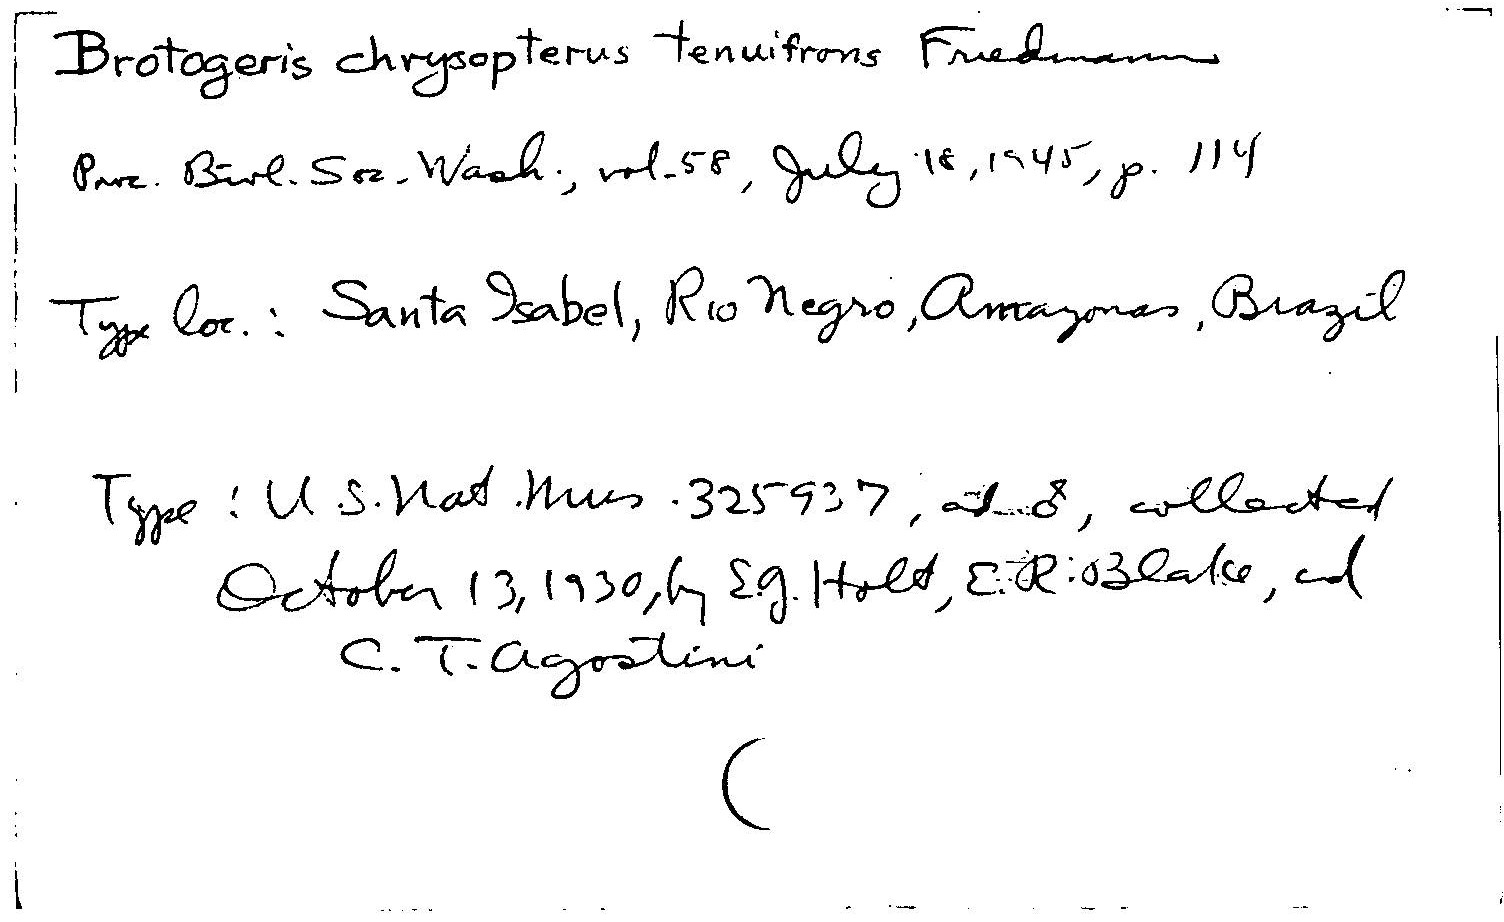 Brotogeris chrysopterus tenuifrons Friedmann
Proc. Biol. Soc. Wash., vol. 58, July 18, 1945, p. 114
Type loc.: Santa Isabel, Rio Negro, Amazonas, Brazil
Type: U.S. Nat. Mus. 325937, ad. ♂, collected
October 13, 1930, by E.G. Holt, E.R. Blake, and
C. T. Agostini